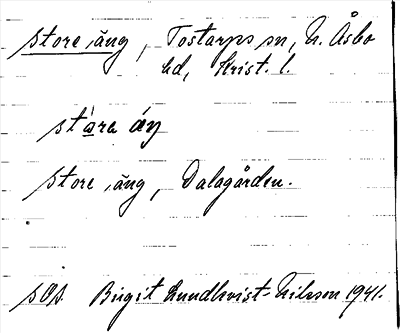 store äng, Tostarps sn, N. Åsbo
hd, Krist. l.
stàra áŋ
store äng, Dalagården.
sOs. Birgit Lundkvist-Nilsson 1941.